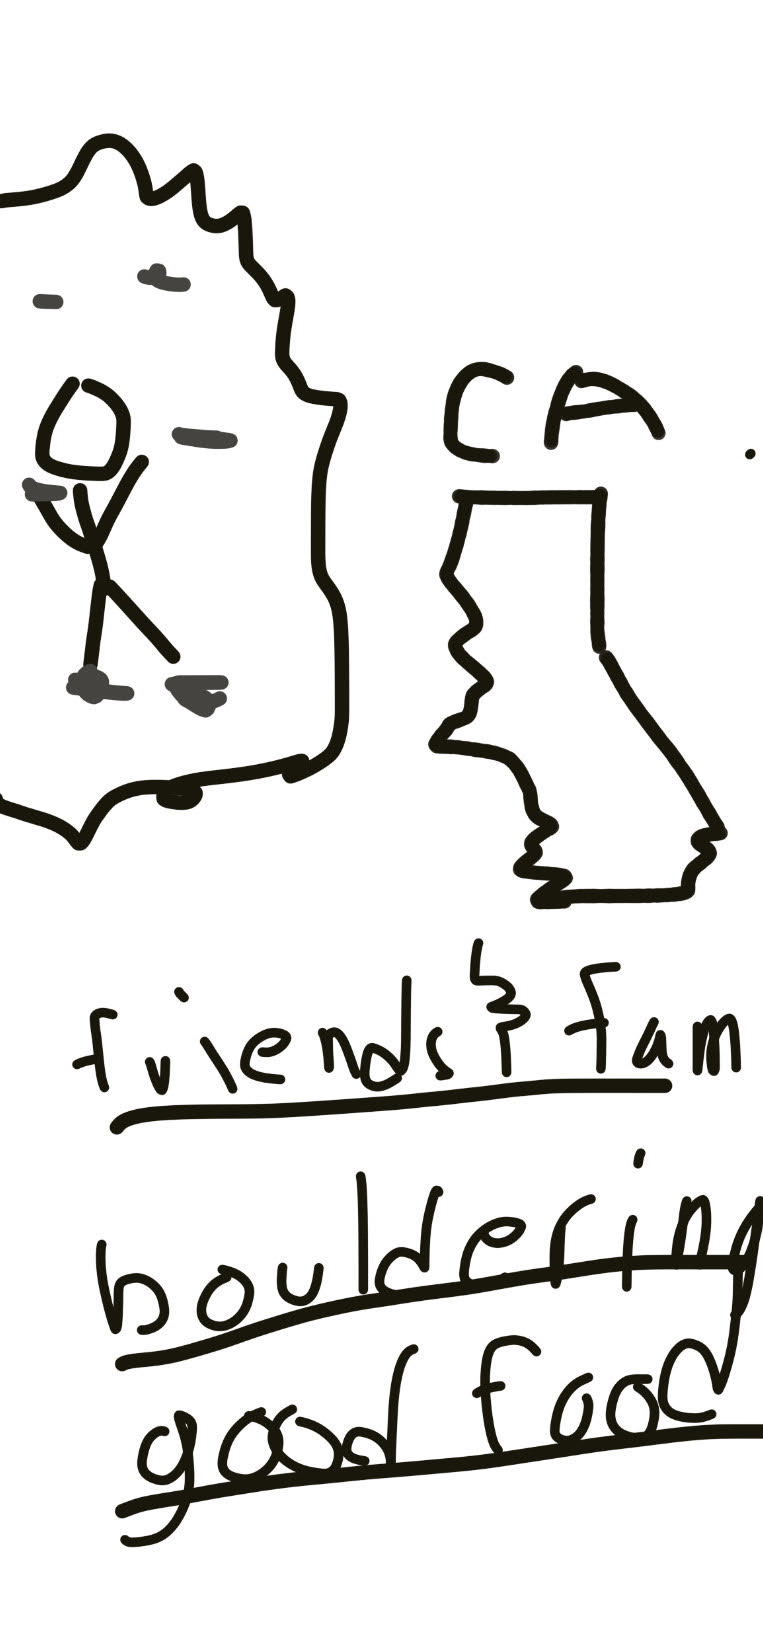 CA
friends & fam
bouldering
good food